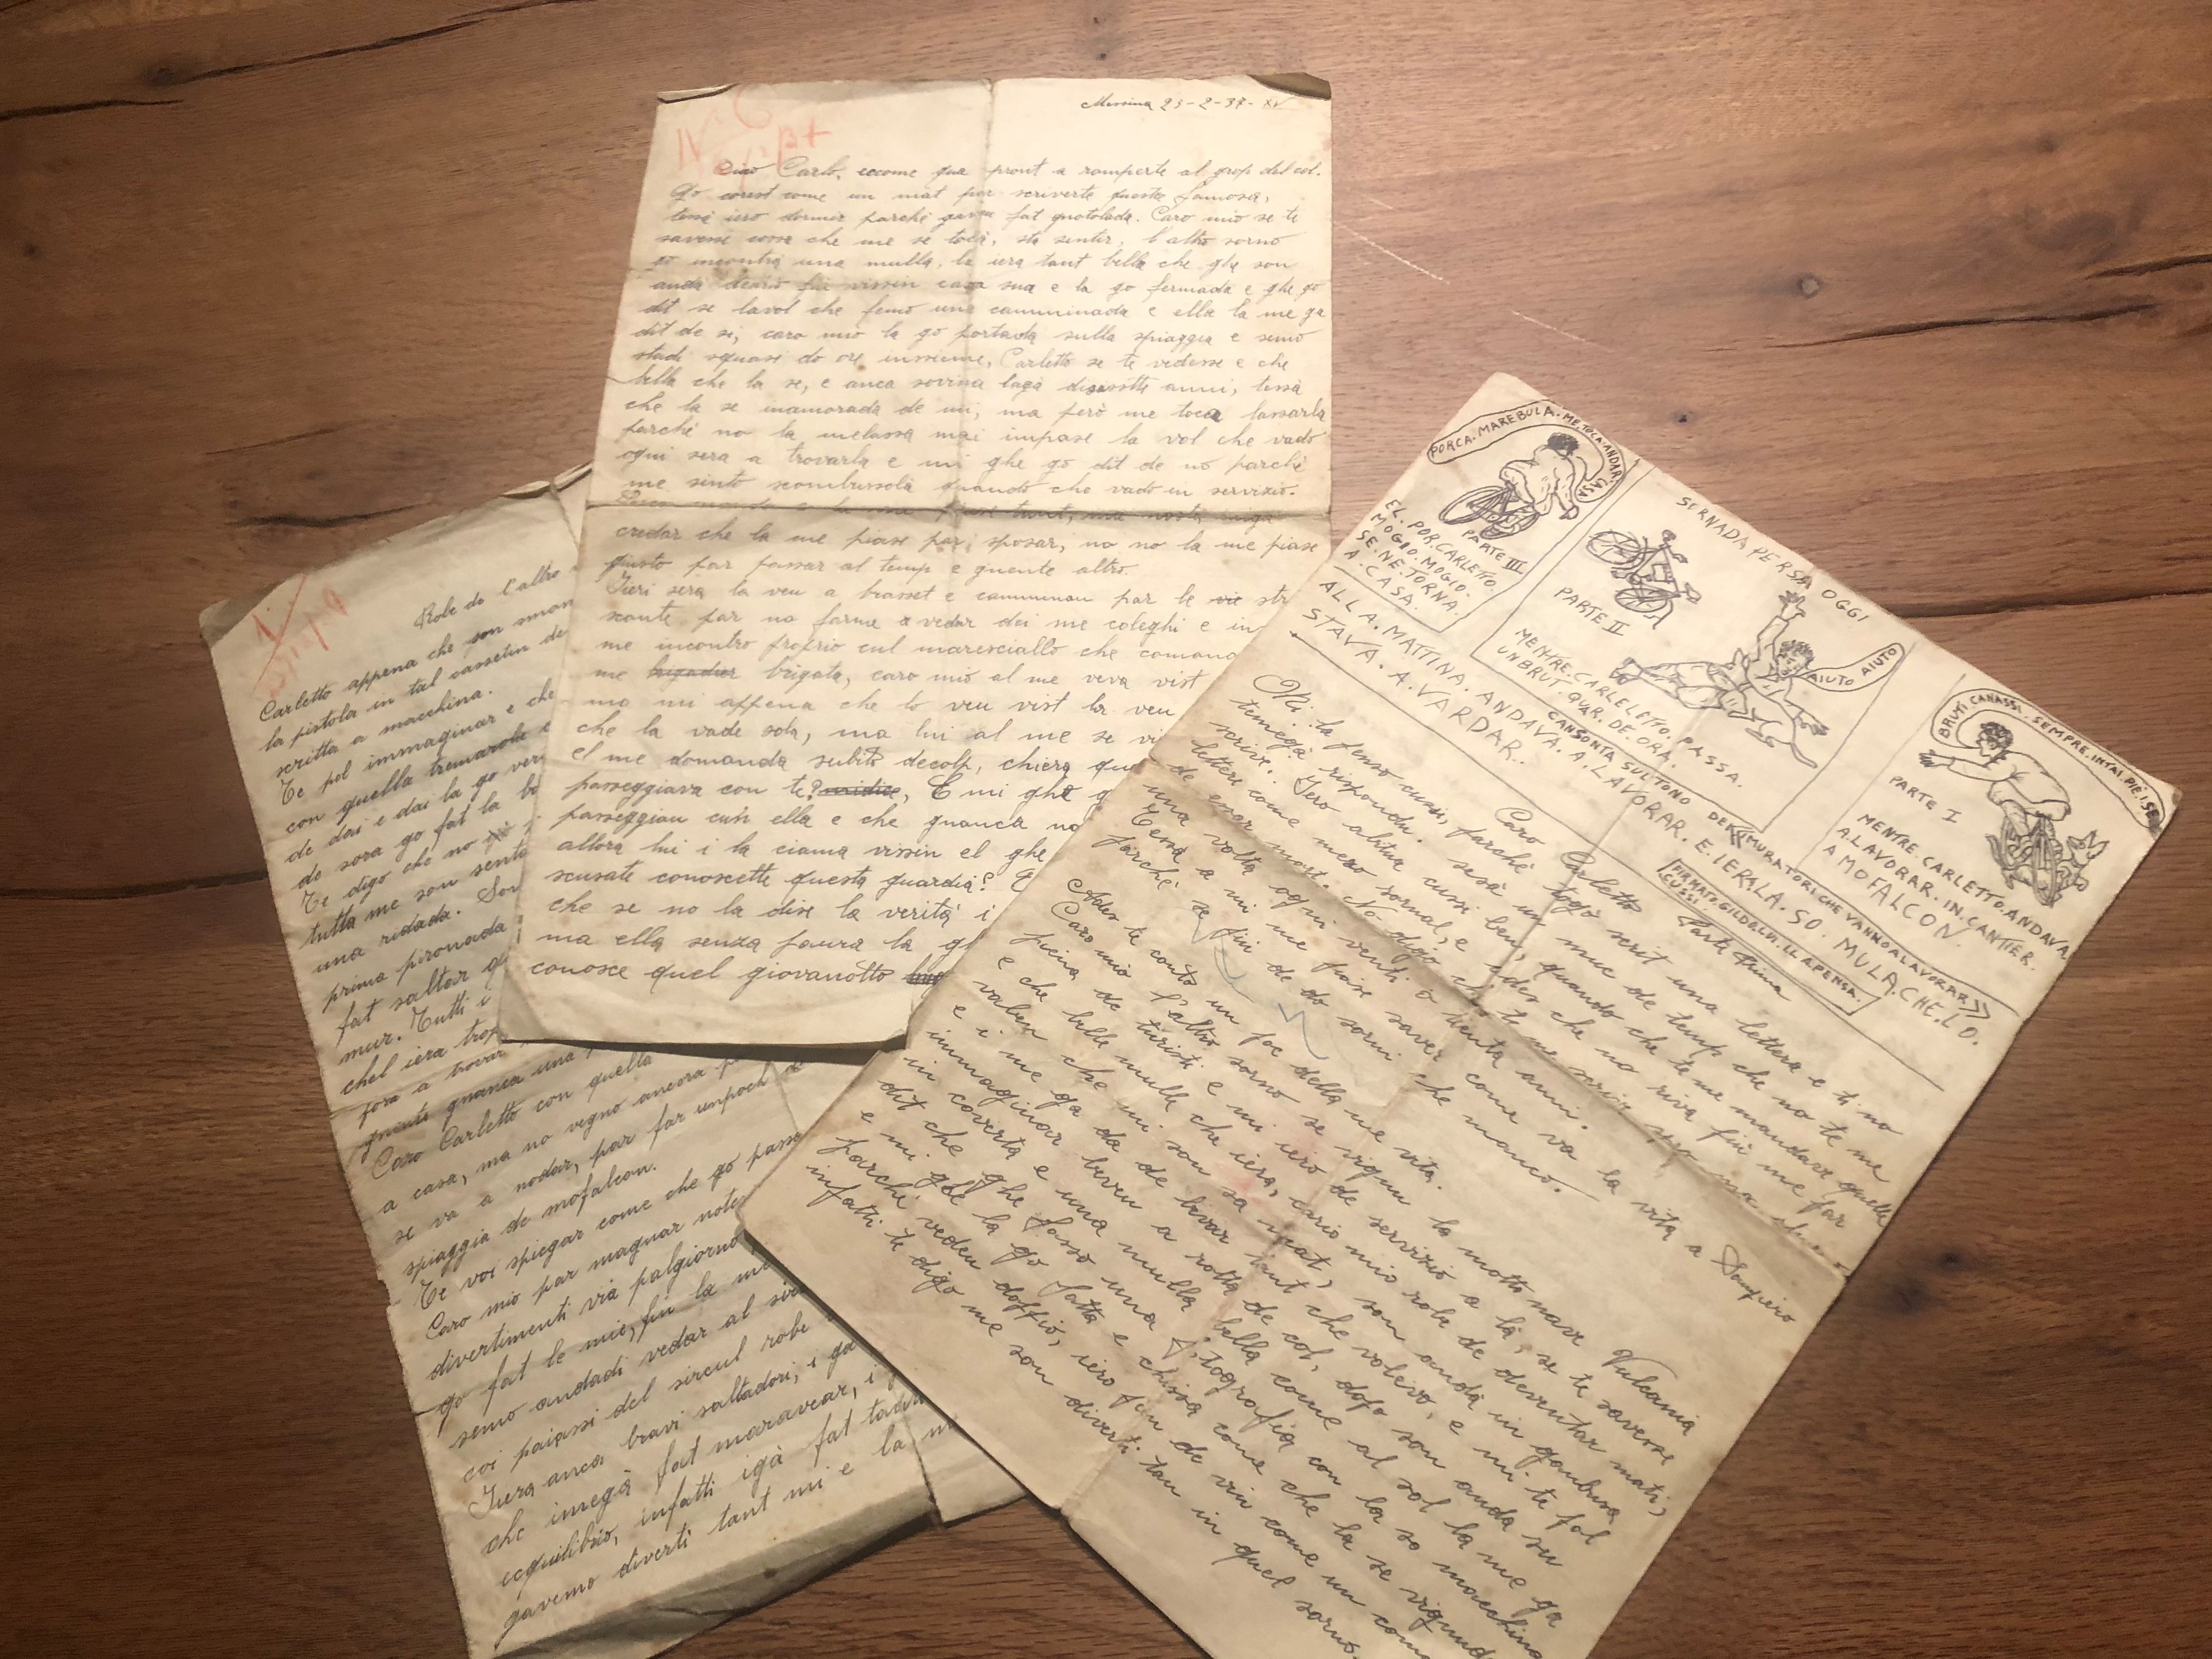 Messina 23-2-37-XV
Ciaò Carlo, eccome qua pront a romperte al grop del col.
Go corest come un mat par scriverte questa famosa,
iero dormir parchè fat Caro mio se te
savessi cossa che me se tocà, sta sentir, l'altro sornò
go incontrà una mulla, la iera tant bella che ghe son
andà drario fin vissin casa sua e la go fermada e ghe go
dit se lavol che femo una camminada e ella la me ga
dit de si, caro mio la go portada sulla spiaggia e semo
stadi squasi do ore inssieme, Carletto se te vedesse e che
bella che la se, e anca sovina lagà disasette anni, tessà
che la se inamorada de mi, ma però me tocca lassarla
parchè no la melassa mai impase la vol che vado
ogni sera a trovarla e mi ghe go dit de no parchè
me sinto scombussolà quando che vado in servizio.
credar che la me piase par sposar, no no la me piase
giusto par passar al temp e quente altro.
Jieri sera la veu a brasset e camminau par le vie str
sconte par no farme vedar dei me coleghi e in
me incontro proprio cul maresciallo che comand
me brigadier brigata, caro mio al me veva vist
ma mi appena che lo veu vist la veu
che la vade sola, ma lui al me se vi
el me domanda subito decolp, chiera que
passeggiava con te? E mi ghe g
passeggiau cun ella e che guanca no
allora lui i la ciama vissin el ghe
scusate conoscette questa guardia? E
che se no la dise la verità i
ma ella senza paura la g
conosce quel giovanotto
Robe de l'altro
Carletto appena che son smon
la pistola in tal cassetin de
scritta a macchina.
Te pol immaginar e che
con quella tremarola e
de dai e dai la go ver
do sora go fat la bo
Te digo che no
tutta me son senta
una ridada. Son
prima pironada
fat saltar qu
mur. Tutti i
chel iera trop
fora a trovar
gnente guanca una
Caro Carletto con quella
a casa, ma no vegno ancora pa
se va a nodar, par far unpoch de
spiaggia de mofalcon.
Te voi spiegar come che go passa
Caro mio par magnar note
divertimenti via palgiorno
go fat le mie, fin la me
semo andadi vedar al sir
coi paiassi del sircul robe
Jiera anca bravi saltadori, i ga
che imegà fat maravear, i
equilibrio, infatti igà fat tadi
gavemo diverti tant mi e la m
PORCA. MAREBULA. ME. TOCA. ANDAR. CASA
PARTE III
EL. POR. CARLETTO.
MOGIO. MOGIO.
SE. NE. TORNA.
A. CASA.
SERNADA PERSA OGGI
PARTE II
AIUTO AIUTO
MENTRE. CARLELETTO. PASSA.
UNBRUT. QUAR. DE. ORA.
BRUTI CANASSI. SEMPRE. INTAI. PIE. I. SE
PARTE I
MENTRE CARLETTO. ANDAVA
A LAVORAR. IN. CANTIER.
A MOFALCON.
CANSONTA SUL TONO DEI "MURATORI. CHE VANNO A LAVORAR"
ALLA. MATTINA. ANDAVA. A. LAVORAR. E. IERA. LA. SO. MULA. CHE. LO.
STAVA. A. VARDAR.
FIRMATO. GILDO. LUI. LLAPENSA.
CUSSI.
Caro Carletto Parte Prima
Mi la penso cussi, parchè togò scrit una lettera e ti no
temegà rispondù. sesà un muc de temp che no te me
scrive. Jero abitua cussi ben, quando che te me mandave quelle
lettere come meso sornal, e ades che no riva più me par
de essar mort. No digo che te me scrivi
una volta ogni venti o trenta anni.
Tessà a mi me piase saver come va la vita a Sanpiero
parchè se fin de do sorni che manco.
Ades te conto un poc della me vita.
Caro mio l'altro sorno se vignu la motto nave Vulcania
piena de turisti e mi iero de servizio a là, se te savesse
e che belle mulle che iera, cario mio roba de deventar mati,
valeu che mi son sa mat, son andà in gambusa
e i me ga da de bivar tant che volevo, e mi te pol
immaginar bevu a rotta de col, dopo son anda su
in coverta e una mulla bella come al sol la me ga
dit che ghe fasso una fitografia con la so macchina
e mi ghe la go fatta e chissa come che la se vignud
parchè vedeu doppio, iero pin de vin come un
infatti te digo me son diverti tan in quel sorno.